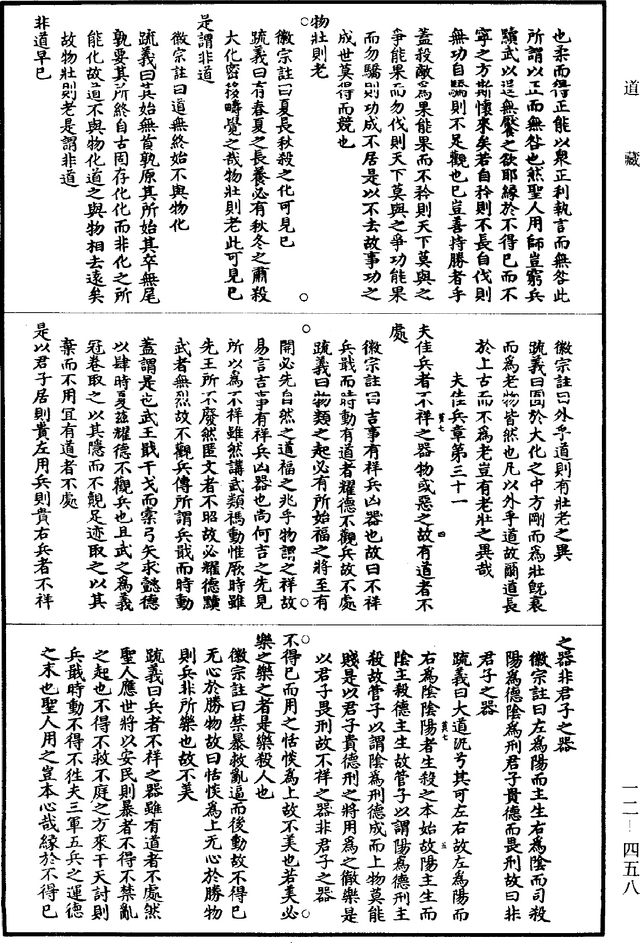 道藏
也柔而得正能以衆正利執言而無咎此
所謂以正而無咎也然聖人用師豈窮兵
黷武以逞無饜之欲耶緣於不得已而不
寧之方斯懷來矣若自矜則不長自伐則
無功自驕則不足觀也已豈善持勝者乎
蓋殺敵爲果能果而不矜則天下莫與之
爭能果而勿伐則天下莫與之爭功能果
而勿驕則功成不居是以不去故事功之
成世莫得而競也
物壯則老
徽宗註曰夏長秋殺之化可見已
疏義曰有春夏之長養必有秋冬之肅殺
大化密移疇覺之哉物壯則老此可見已
是謂非道
徽宗註曰道無終始不與物化
疏義曰其始無首孰原其所始其卒無尾
孰要其所終自古固存化化而非化之所
能化故道不與物化道之與物相去遠矣
故物壯則老是謂非道
非道早已
徽宗註曰外乎道則有壯老之異
疏義曰囿於大化之中方剛而爲壯旣衰
而爲老物皆然也凡以外乎道故爾道長
於上古而不爲老豈有老壯之異哉
夫佳兵章第三十一
夫佳兵者不祥之器物或惡之故有道者不
處
徽宗註曰吉事有祥兵凶器也故曰不祥
兵戢而時動有道者耀德不觀兵故不處
疏義曰物類之起必有所始福之將至有
開必先自然之道福之兆乎物謂之祥故
易言吉事有祥兵凶器也尚何吉之先見
所以爲不祥雖然講武類禡動惟厥時雖
先王所不廢然匿文者不昭故必耀德黷
武者無烈故不觀兵傳所謂兵戢而時動
蓋謂是也武王戢干戈而櫜弓矢求懿德
以肆時夏茲耀德不觀兵也且武之爲義
冠卷取之以其隱而不覿足迹取之以其
棄而不用宜有道者不處
是以君子居則貴左用兵則貴右兵者不祥
之器非君子之器
徽宗註曰左爲陽而主生右爲陰而司殺
陽爲德陰爲刑君子貴德而畏刑故曰非
君子之器
疏義曰大道汎兮其可左右故左爲陽而
右爲陰陰陽者生殺之本始故陽主生而
陰主殺德主生故管子以謂陽爲德刑主
殺故管子以謂陰爲刑德成而上物莫能
賤是以君子貴德刑之將用爲之徹樂是
以君子畏刑故不祥之器非君子之器
不得已而用之恬惔爲上故不美也若美必
樂之樂之者是樂殺人也
徽宗註曰禁暴救亂逼而後動故不得已
无心於勝物故曰恬惔爲上无心於勝物
則兵非所樂也故不美
疏義曰兵者不祥之器雖有道者不處然
聖人應世將以安民則暴者不得不禁亂
之起也不得不救不庭之方來干天討則
兵戢時動不得不徃夫三軍五兵之運德
之末也聖人用之豈本心哉緣於不得已
一二—四五八